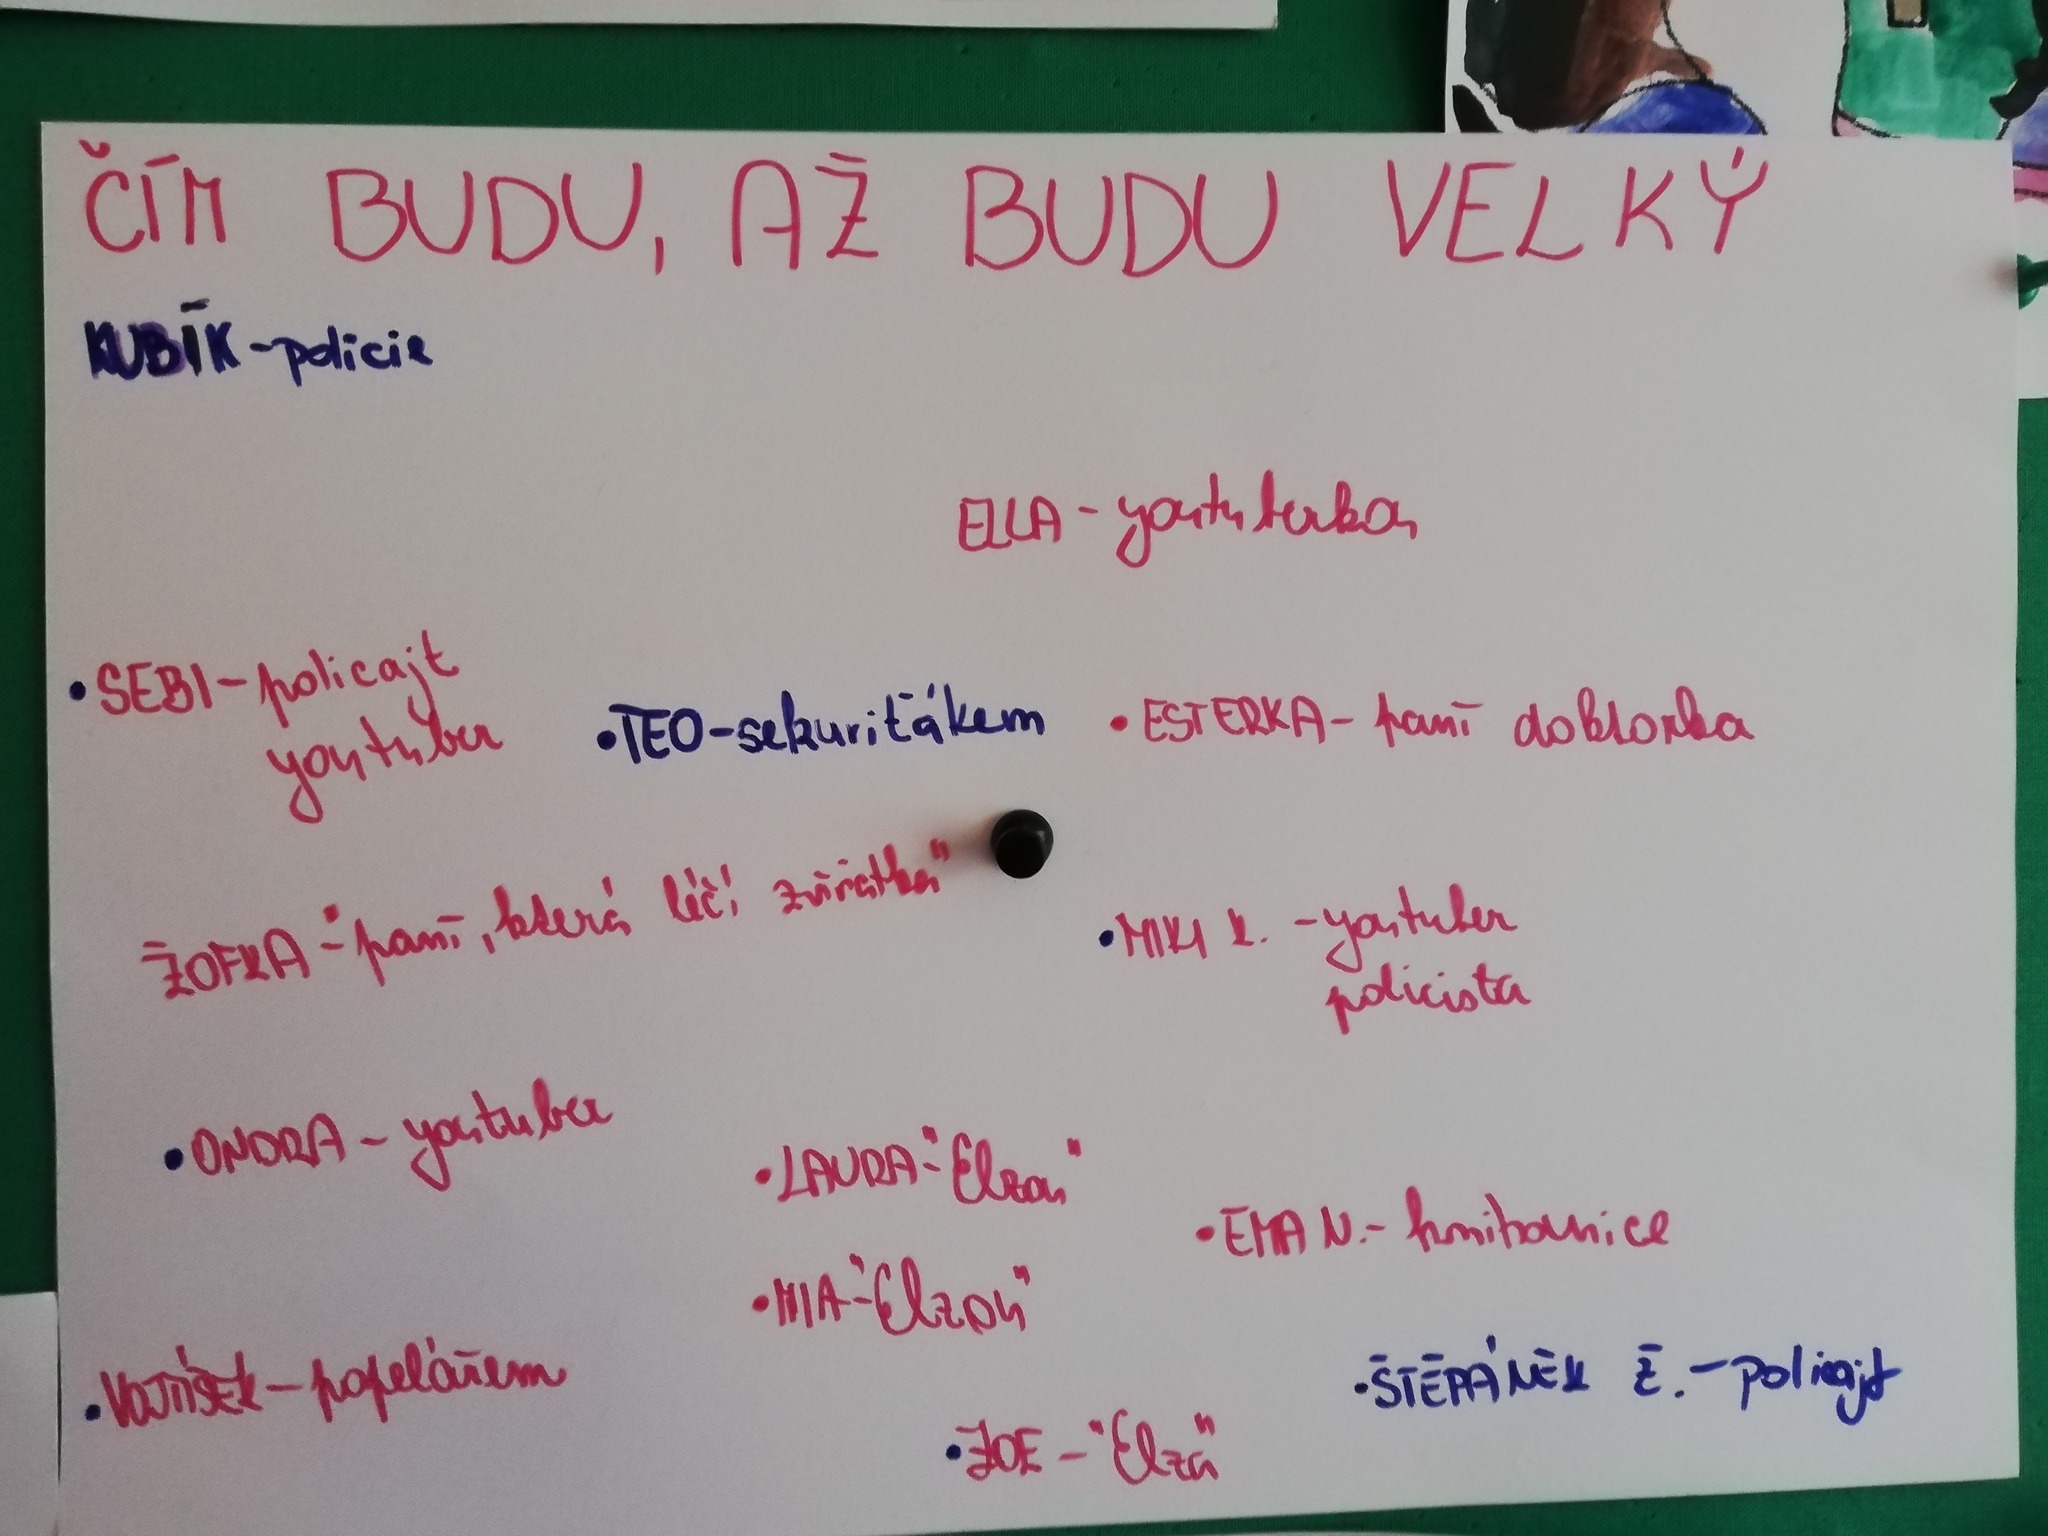 ČÍM BUDU, AŽ BUDU VELKÝ
KUBÍK - policie
ELLA - youtuberkou
• SEBI - policajt
youtuber
• TEO - sekuriťákem
• ESTERKA - paní doktorka
ŽOFKA - "paní, která léčí zvířátka"
• MIKI K. - youtuber
policista
• ONDRA - youtuber
• LAURA - "Elzou"
• EMA N. - knihovnice
• MIA - "Elzou"
• VOJTÍŠEK - popelářem
• ŠTĚPÁNEK Ž. - policajt
• ZOE - "Elza"